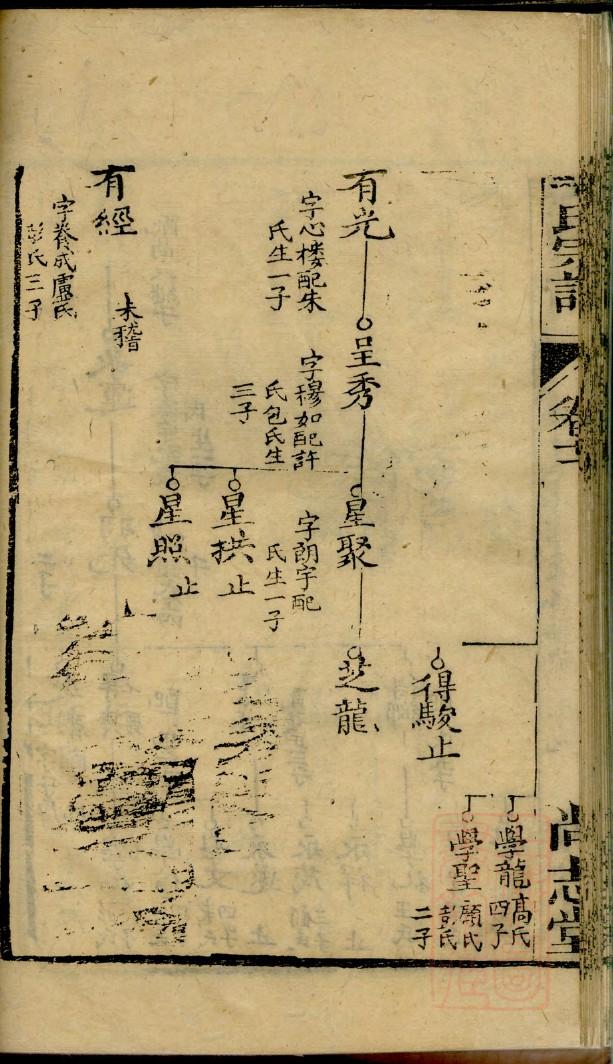 氏宗譜
卷十二
尚志堂
學龍
高氏
四子
學聖
顧氏
彭氏
二子
得駿止
有光
字心楼配朱
氏生一子
呈秀
字穆如配許
氏包氏生
三子
星聚
字朗宇配
氏生一子
芝龍
星拱止
星照止
有經
未稽
字養成盧氏
彭氏三子